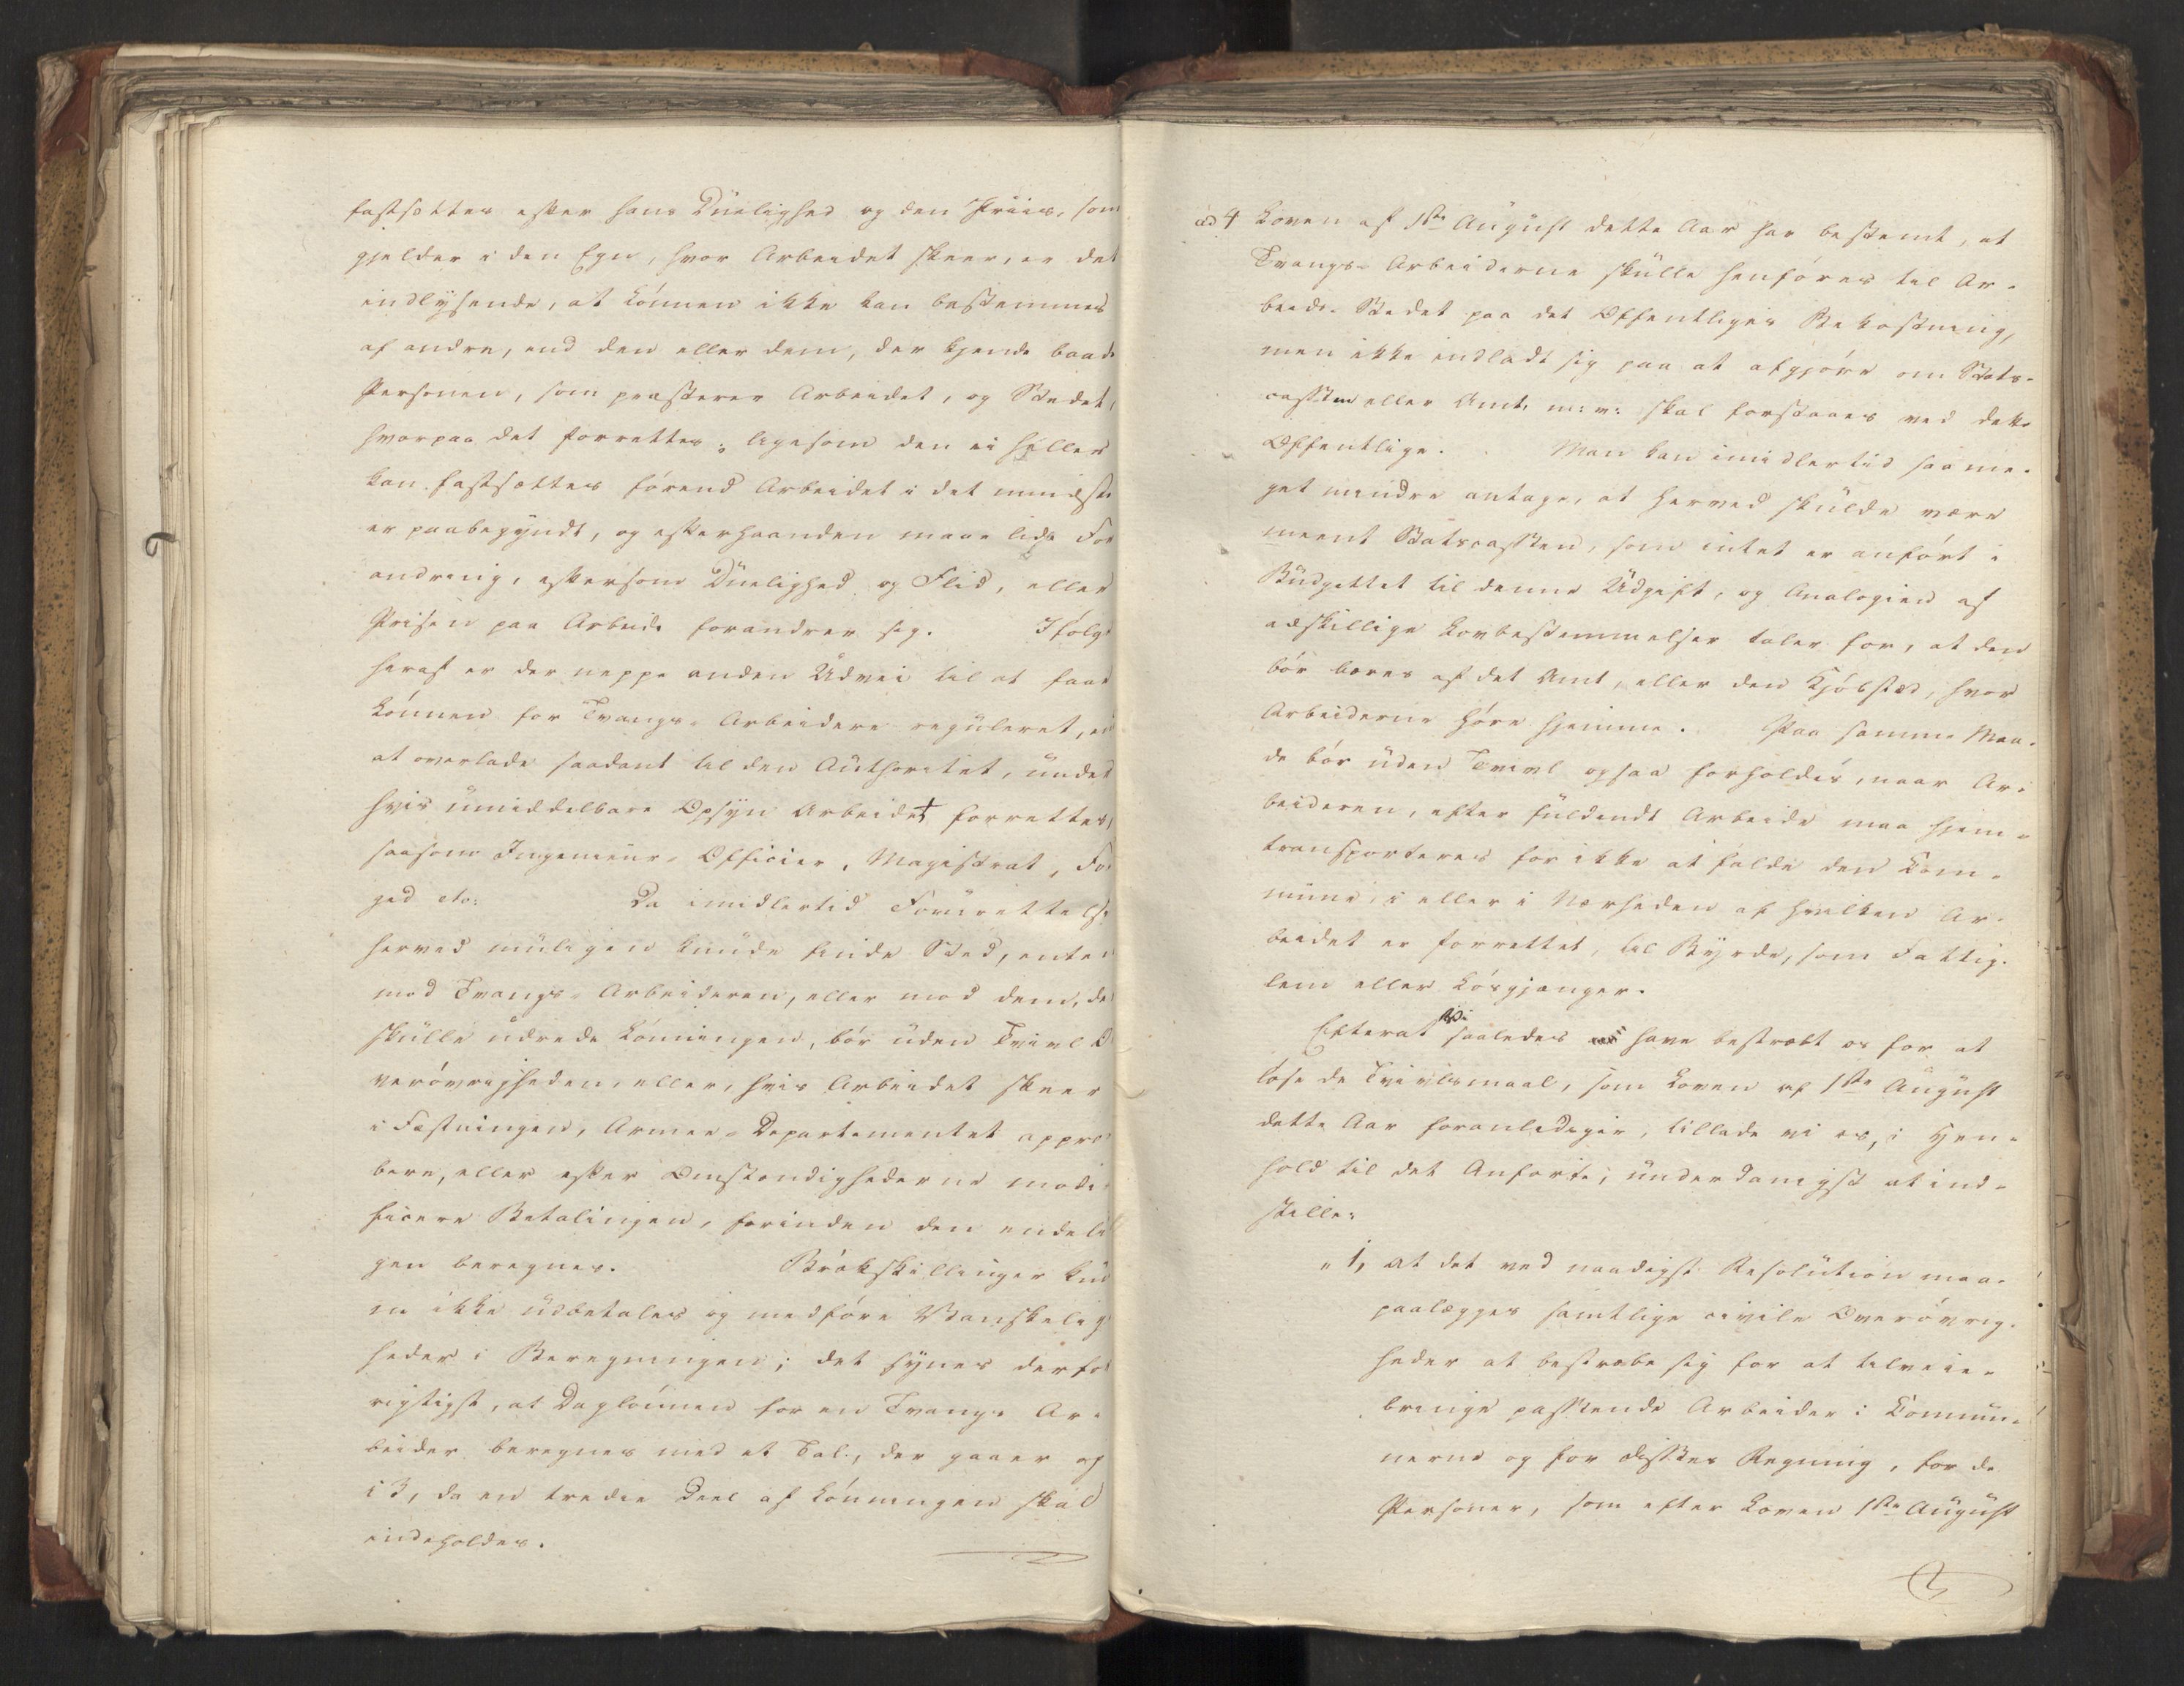 fastsættes efter hans Duelighed og den Priis, som
gjelder i den Egn, hvor Arbeidet skeer, er det
indlysende, at Lønnen ikke kan bestemmes
af andre, end den eller dem, der kjende baade
Personen, som præsterer Arbeidet, og Stedet,
hvorpaa det forrettes; ligesom den ei heller
kan fastsættes førend Arbeidet i det mindste
er paabegyndt, og efterhaanden maae lide For
andring, eftersom Duelighed og Flid, eller
Prisen paa Arbeide forandrer sig. Ifølge
heraf er der neppe anden Udvei til at faae
Lønnen for Tvangs-Arbeidere reguleret, end
at overlade saadant til den Authoritet, under
hvis umiddelbare Opsyn Arbeidet forrettes,
saasom Ingenieur-Officier, Magistrat, Fo-
ged etc: Da imidlertid Forurettelse
herved muligen kunde finde Sted, enten
mod Tvangs-Arbeideren, eller mod dem, der
skulle udrede Lønningen, bør uden Tvivl O
verøvrigheden, eller, hvis Arbeidet skeer
i Fæstningen, Armee-Departementet appro
bere, eller efter Omstændighederne modi-
ficere Betalingen, forinden den endeli
gen beregnes. Brøkskillinger kun
ne ikke udbetales og medføre Vanskelig
heder i Beregningen; det synes derfor
rigtigst, at Daglønnen for en Tvangs Ar-
beider beregnes med et Tal, der gaaer op
i 3, da en tredie Deel af Lønningen skal
indeholdes.
ad 4 Loven af 1ste August dette Aar har bestemt, at
Tvangs-Arbeiderne skulle henføres til Ar-
beids-Stedet paa det Offentliges Bekostning,
men ikke indladt sig paa at afgjøre om Stats-
cassen eller Amt. m: v: skal forstaaes ved dette
Offentlige. Man kan imidlertid saa me-
get mindre antage, at herved skulde være
meent Statscassen, som intet er anført i
Budgettet til denne Udgift, og Analogien af
adskillige Lovbestemmelser taler for, at den
bør bæres af det Amt, eller den Kjøbstæd, hvor
Arbeiderne høre hjemme. Paa samme Maa-
de bør uden Tvivl ogsaa forholdes, naar Ar-
beideren, efter fuldendt Arbeide maa hjem-
transporteres for ikke at falde den Com-
mune, i eller i Nærheden af hvilken Ar-
beidet er forrettet, til Byrde, som Fattig-
lem eller Løsgjænger.
Efterat Vi saaledes have bestræbt os for at
løse de Tvivlsmaal, som Loven af 1ste August
dette Aar foranlediger, tillade vi os, i Hen-
hold til det Anførte, underdanigst at ind-
stille:
„1, at det ved naadigst Resolution maa-
paalægges samtlige civile Overøvrig-
heder at bestræbe sig for at tilveie-
bringe passende Arbeider i Commu-
nerne og for disses Regning, for de
Personer, som efter Loven 1ste August